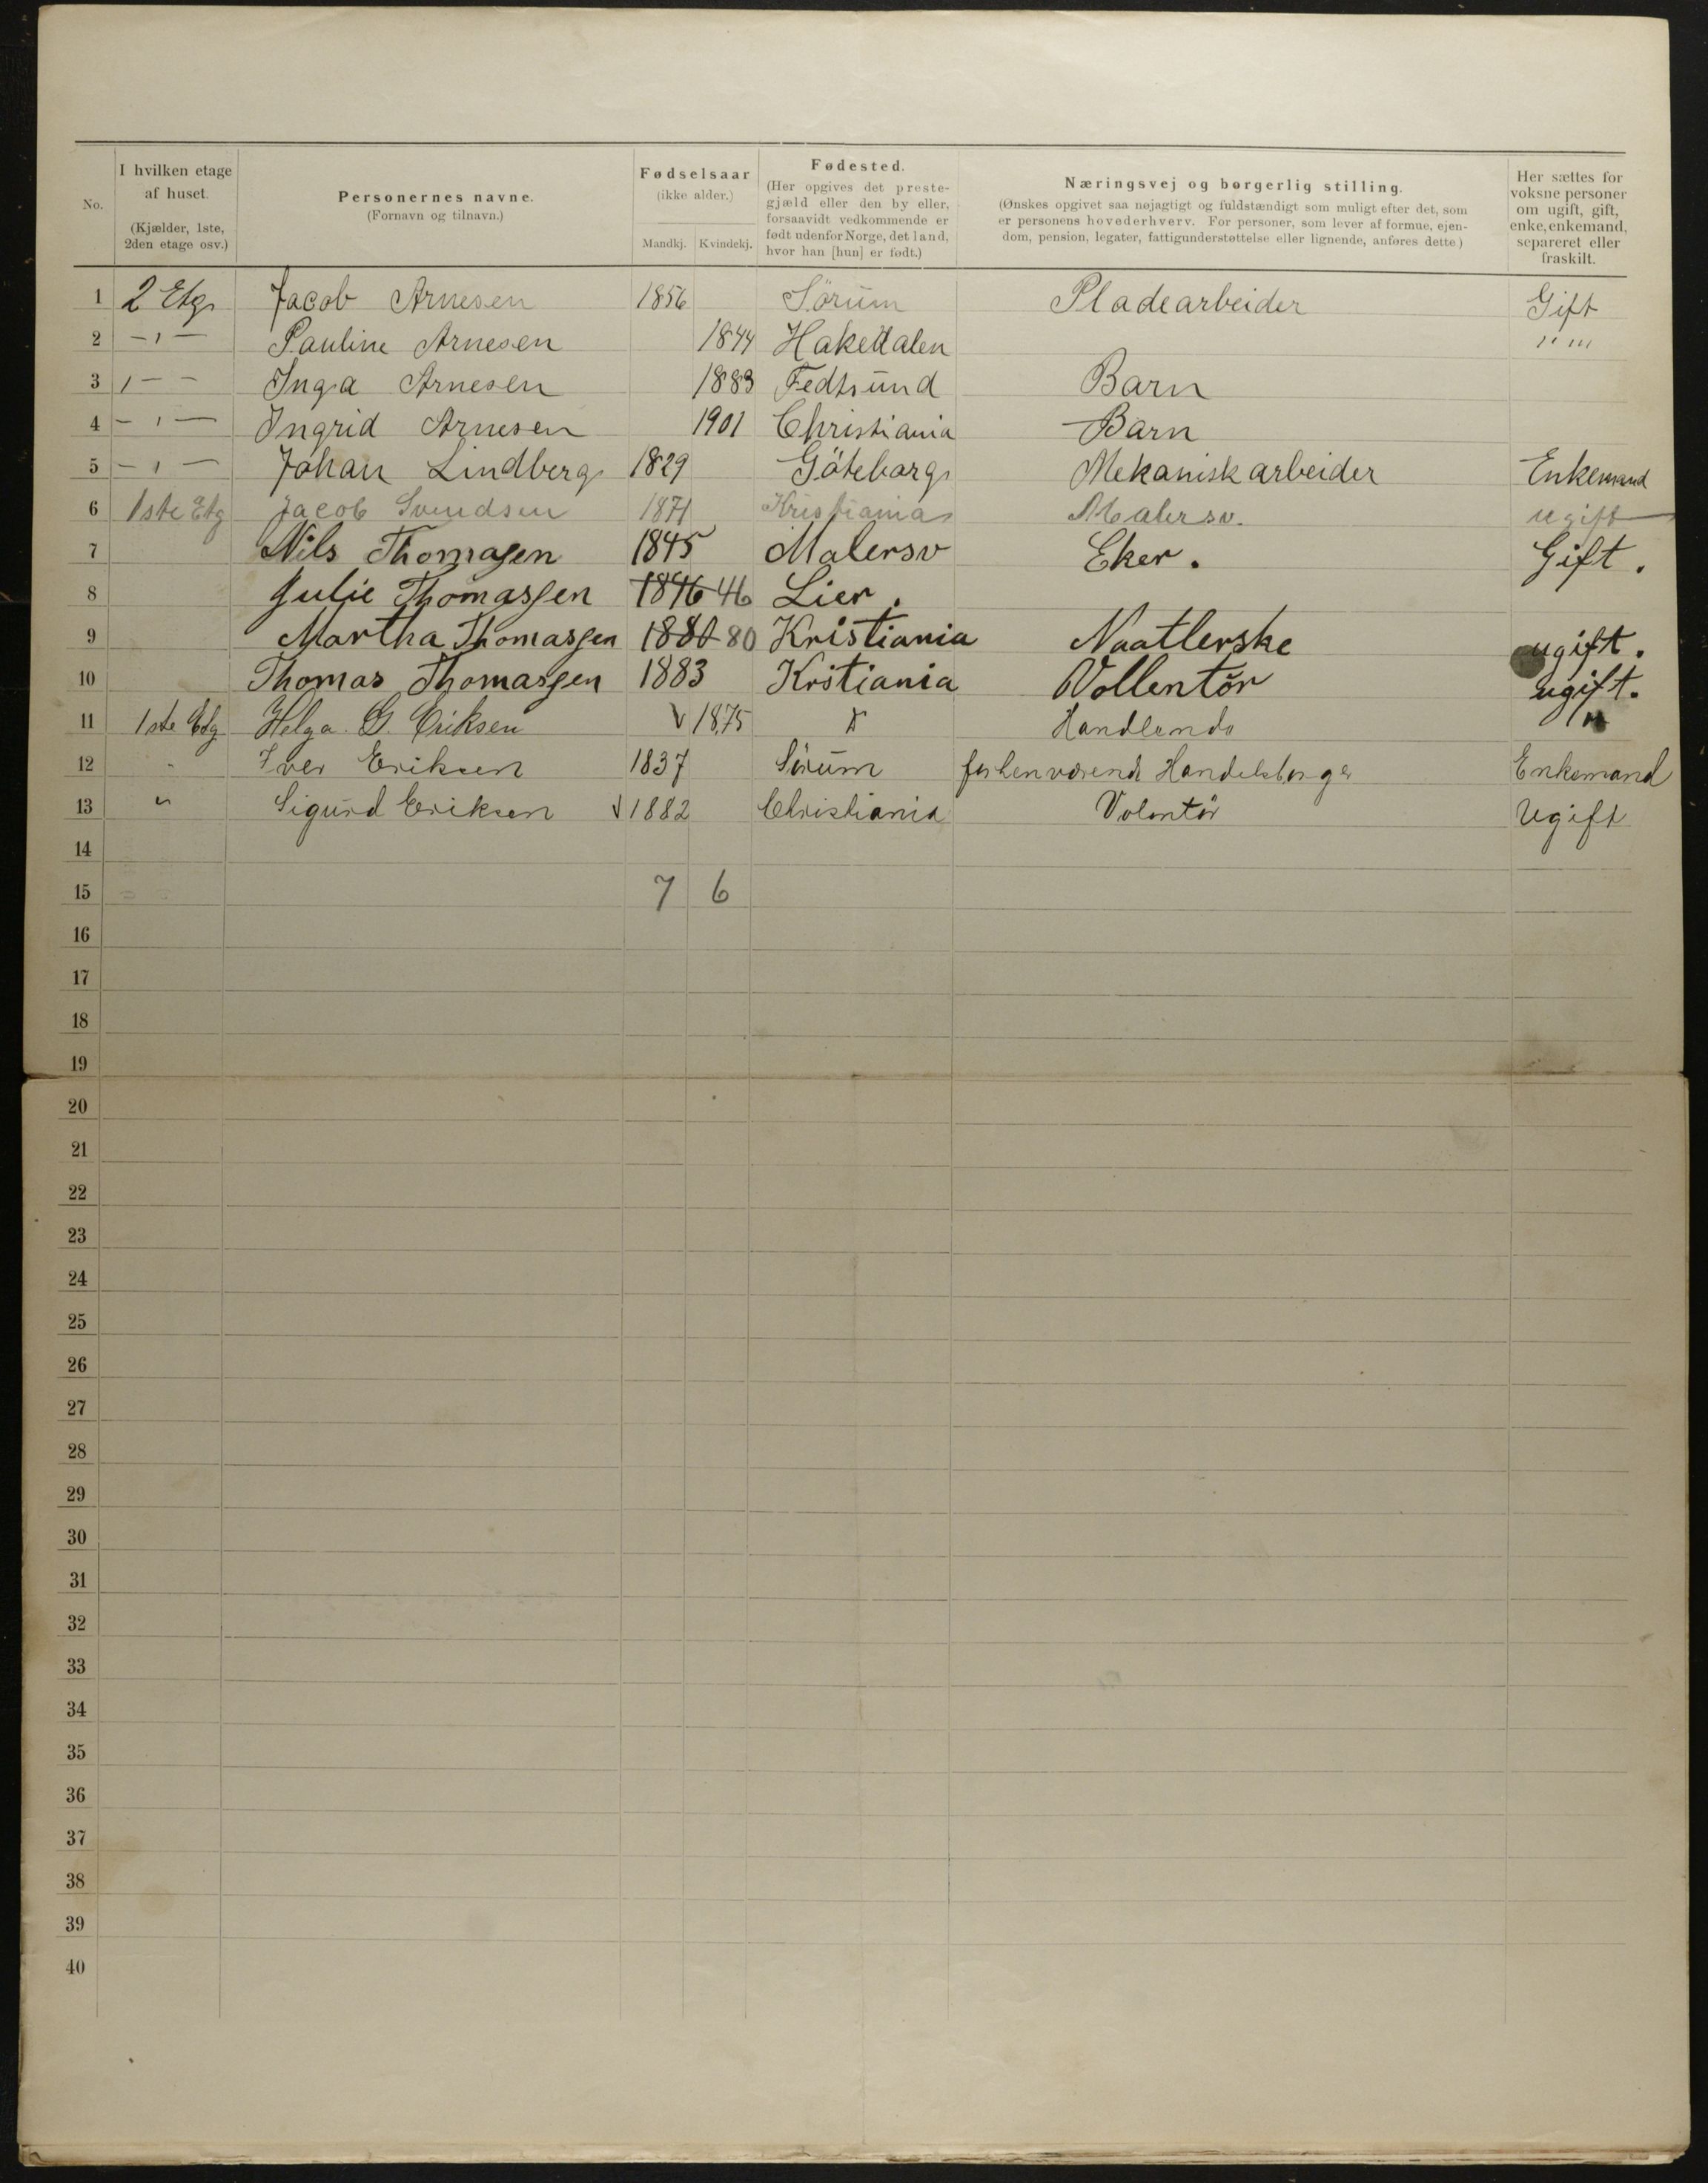 No.
I hvilken etage af huset. (Kjælder, 1ste, 2den etage osv.)
Personernes navne. (Fornavn og tilnavn.)
Fødselsaar (ikke alder.) Mandkj. Kvindekj.
Fødested. (Her opgives det prestegjæld eller den by eller, forsaavidt vedkommende er født udenfor Norge, det land, hvor han [hun] er født.)
Næringsvej og borgerlig stilling. (Ønskes opgivet saa nøjagtigt og fuldstændigt som muligt efter det, som er personens hovederhverv. For personer, som lever af formue, ejendom, pension, legater, fattigunderstøttelse eller lignende, anføres dette.)
Her sættes for voksne personer om ugift, gift, enke, enkemand, separeret eller fraskilt.
1 2 Etg Jacob Arnesen 1856 Sörum Pladearbeider Gift
2 — " — Pauline Arnesen 1844 Hakedalen " "
3 " — — Inga Arnesen 1883 Fedtsund Barn
4 — " — Ingrid Arnesen 1901 Christiania Barn
5 — " — Johan Lindberg 1829 Göteborg Mekanisk arbeider Enkemand
6 1ste Etg Jacob Svendsen 1871 Kristiania Malersv. ugift
7 Nils Thomasen 1845 Malersv Eker. Gift.
8 Julie Thomassen 1846 46 Lier.
9 Martha Thomassen 1880 80 Kristiania Naatlerske ugift.
10 Thomas Thomassen 1883 Kristiania Vollentör ugift.
11 1ste Etg Helga G. Eriksen 1875 Handlende "
12 " Iver Eriksen 1837 Sörum forhenværende Handelsborger Enkemand
13 " Sigurd Eriksen 1882 Christiania Volontör Ugift
14
15 7 6
16
17
18
19
20
21
22
23
24
25
26
27
28
29
30
31
32
33
34
35
36
37
38
39
40